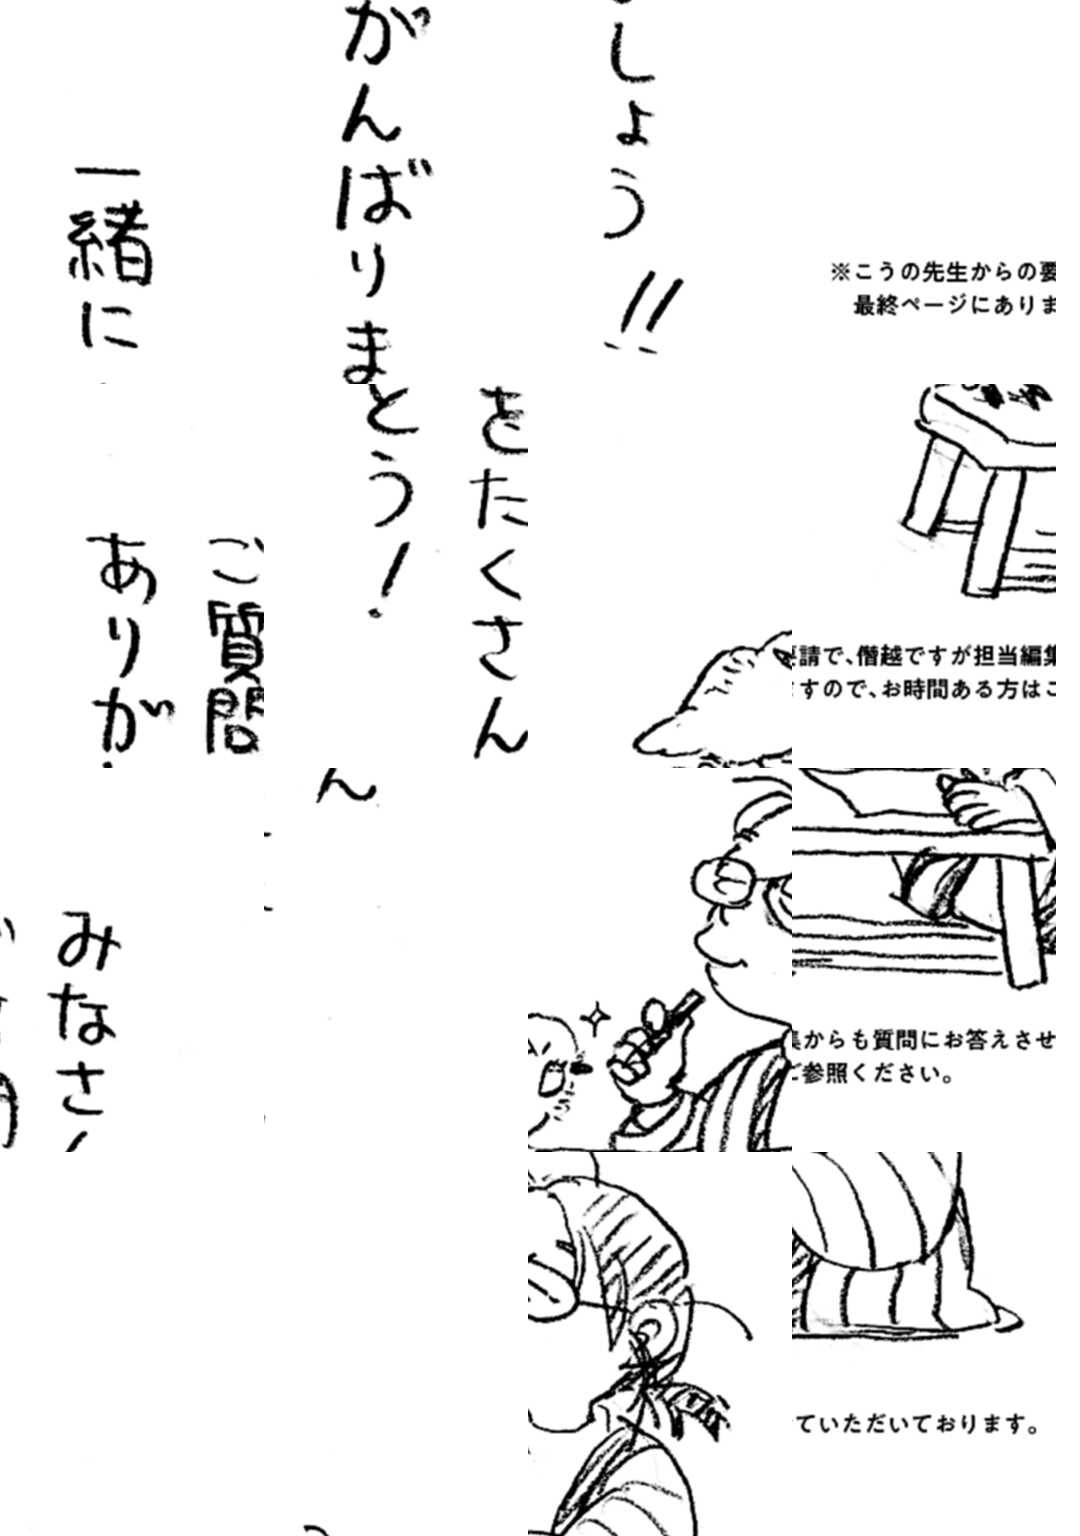 しょう!!
がんばりま
一緒に
※こうの先生からの要
最終ページにありま
をたくさん
とう!
ご質問
ありが
請で、僭越ですが担当編集
すので、お時間ある方はご
ん
みなさ
からも質問にお答えさせ
ご参照ください。
ていただいております。